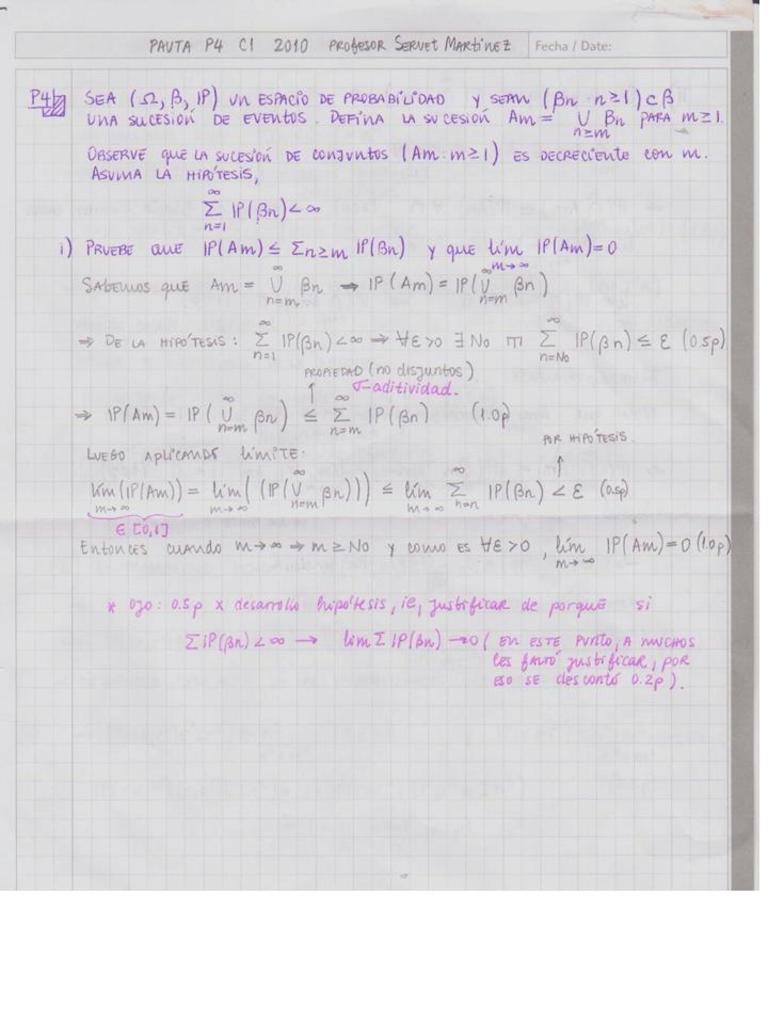 PAUTA P4 C1 2010 PROFESOR SERVET MARTÍNEZ
Fecha / Date:
P4 SEA (Ω, β, IP) UN ESPACIO DE PROBABILIDAD Y SEAN (βn : n≥1) ⊂ β
UNA SUCESIÓN DE EVENTOS. DEFINA LA SUCESIÓN Am = ∪_{n≥m} βn PARA m≥1.
OBSERVE QUE LA SUCESIÓN DE CONJUNTOS (Am : m≥1) ES DECRECIENTE CON m.
ASUMA LA HIPÓTESIS,
∑_{n=1}^{∞} IP(βn) < ∞
i) PRUEBE QUE IP(Am) ≤ Σn≥m IP(βn) Y QUE lím_{m→∞} IP(Am)=0
SABEMOS QUE Am = ∪_{n=m}^{∞} βn → IP(Am) = IP(∪_{n=m}^{∞} βn)
⇒ DE LA HIPÓTESIS: ∑_{n=1}^{∞} IP(βn) < ∞ ⇒ ∀ε>0 ∃ No m ∑_{n=No}^{∞} IP(βn) ≤ ε (0.5p)
PROPIEDAD (no disjuntos)
↑ σ-aditividad.
⇒ IP(Am) = IP(∪_{n=m}^{∞} βn) ≤ ∑_{n=m}^{∞} IP(βn) (1.0p)
POR HIPÓTESIS.
LUEGO APLICANDO LÍMITE: ↑
lím_{m→∞}(IP(Am)) = lím_{m→∞}((IP(∪_{n=m}^{∞} βn))) ≤ lím_{m→∞} ∑_{n=m}^{∞} IP(βn) < ε (0.5p)
∈ [0,1]
Entonces cuando m→∞ ⇒ m≥No y como es ∀ε>0, lím_{m→∞} IP(Am)=0 (1.0p)
* Ojo: 0.5p x desarrollo hipótesis, ie, justificar de porqué si
ΣIP(βn) < ∞ → lím Σ IP(βn) → 0 ( EN ESTE PUNTO, A MUCHOS
les faltó justificar, por
eso se descontó 0.2p).